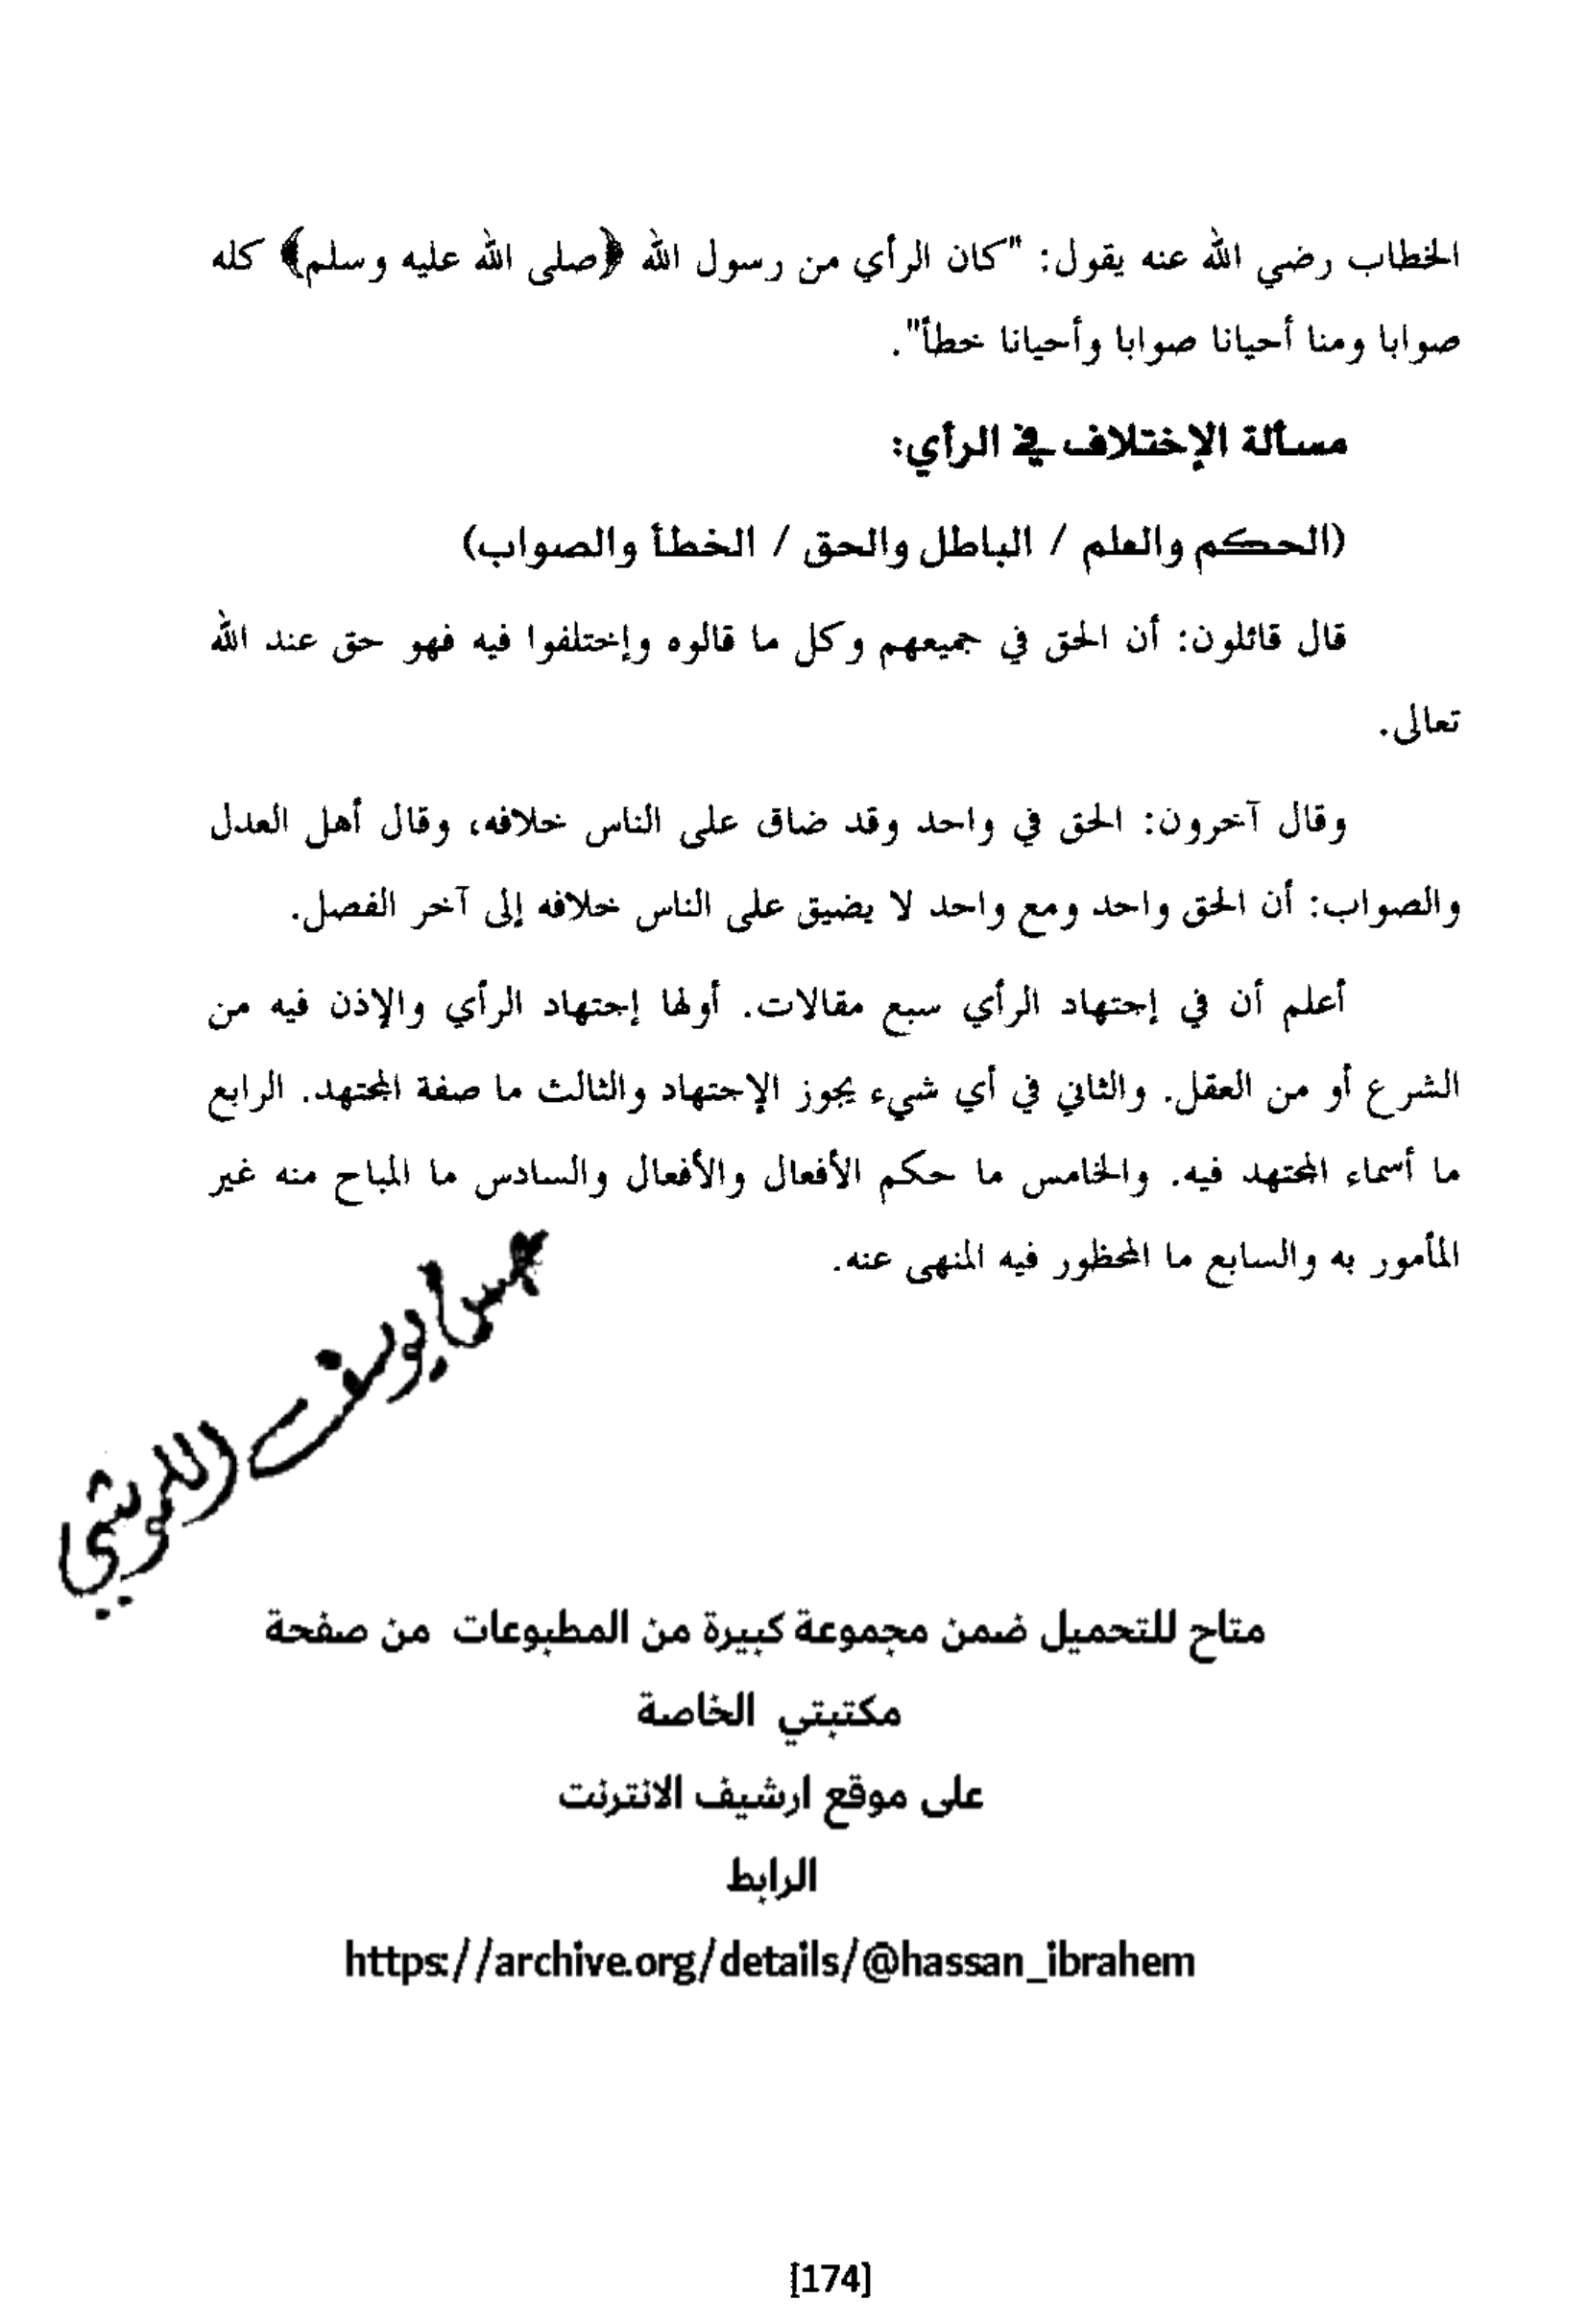 الخطاب رضي الله عنه يقول: "كان الرأي من رسول الله ﴿صلى الله عليه وسلم﴾ كله
صوابا ومنا أحيانا صوابا وأحيانا خطأ".
مسألة الإختلاف في الرأي:
(الحكم والعلم / الباطل والحق / الخطأ والصواب)
قال قائلون: أن الحق في جميعهم وكل ما قالوه وإختلفوا فيه فهو حق عند الله
تعالى.
وقال آخرون: الحق في واحد وقد ضاق على الناس خلافه، وقال أهل العدل
والصواب: أن الحق واحد ومع واحد لا يضيق على الناس خلافه إلى آخر الفصل.
أعلم أن في إجتهاد الرأي سبع مقالات. أولها إجتهاد الرأي والإذن فيه من
الشرع أو من العقل. والثاني في أي شيء يجوز الإجتهاد والثالث ما صفة المجتهد. الرابع
ما أسماء المجتهد فيه. والخامس ما حكم الأفعال والأفعال والسادس ما المباح منه غير
المأمور به والسابع ما المحظور فيه المنهى عنه.
متاح للتحميل ضمن مجموعة كبيرة من المطبوعات من صفحة
مكتبتي الخاصة
على موقع ارشيف الانترنت
الرابط
https://archive.org/details/@hassan_ibrahem
[174]